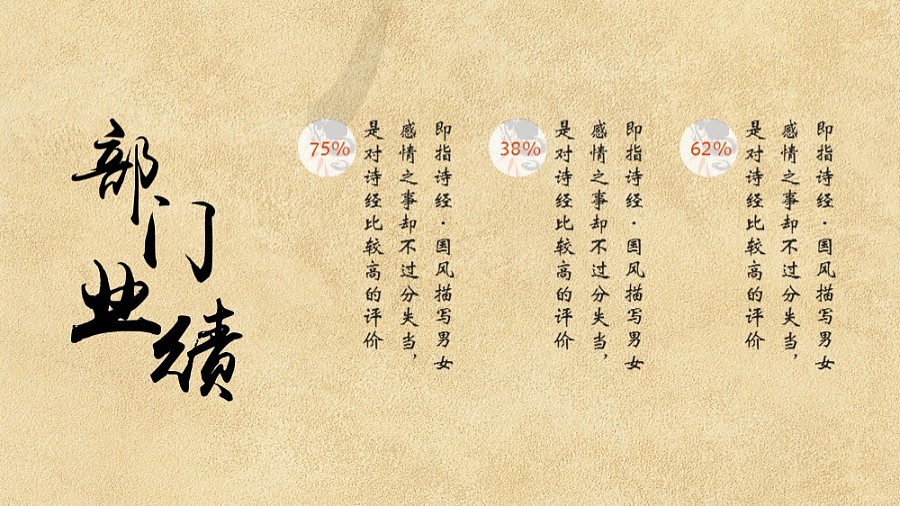 部门业绩
75%
即指诗经·国风描写男女
感情之事却不过分失当,
是对诗经比较高的评价
38%
即指诗经·国风描写男女
感情之事却不过分失当,
是对诗经比较高的评价
62%
即指诗经·国风描写男女
感情之事却不过分失当,
是对诗经比较高的评价